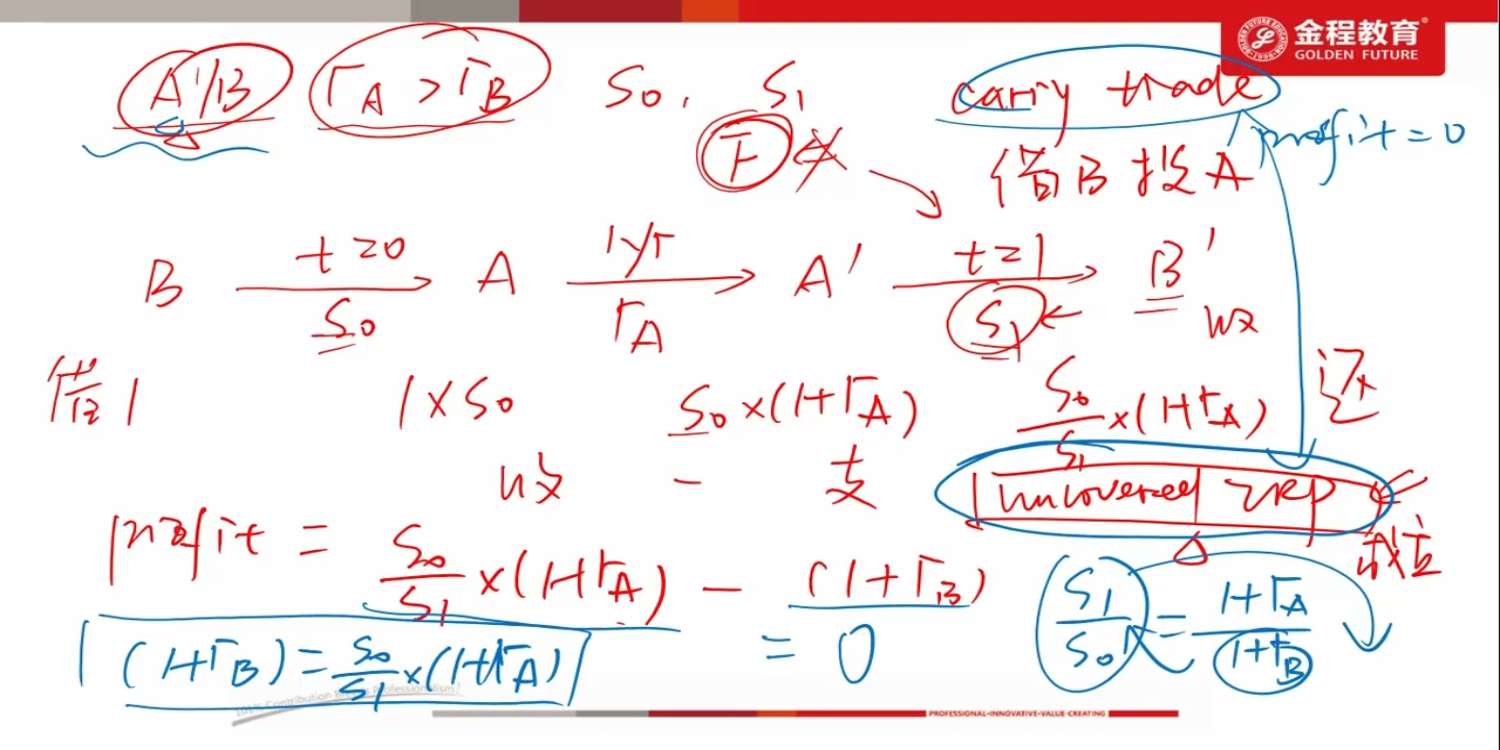 金程教育®
GOLDEN FUTURE
A/B rA > rB S0, S1 carry trade
profit = 0
F 借B投A
B t=0 S0 A 1yr rA A' t=1 S1 B'
收
借1 1×S0 S0×(1+rA) S0/S1×(1+rA) 还
收 - 支 uncovered IRP
成立
profit = S0/S1×(1+rA) - (1+rB)
= 0
S1/S0 = 1+rA/1+rB
(1+rB) = S0/S1×(1+rA)
PROFESSIONAL·INNOVATIVE·VALUE-CREATING